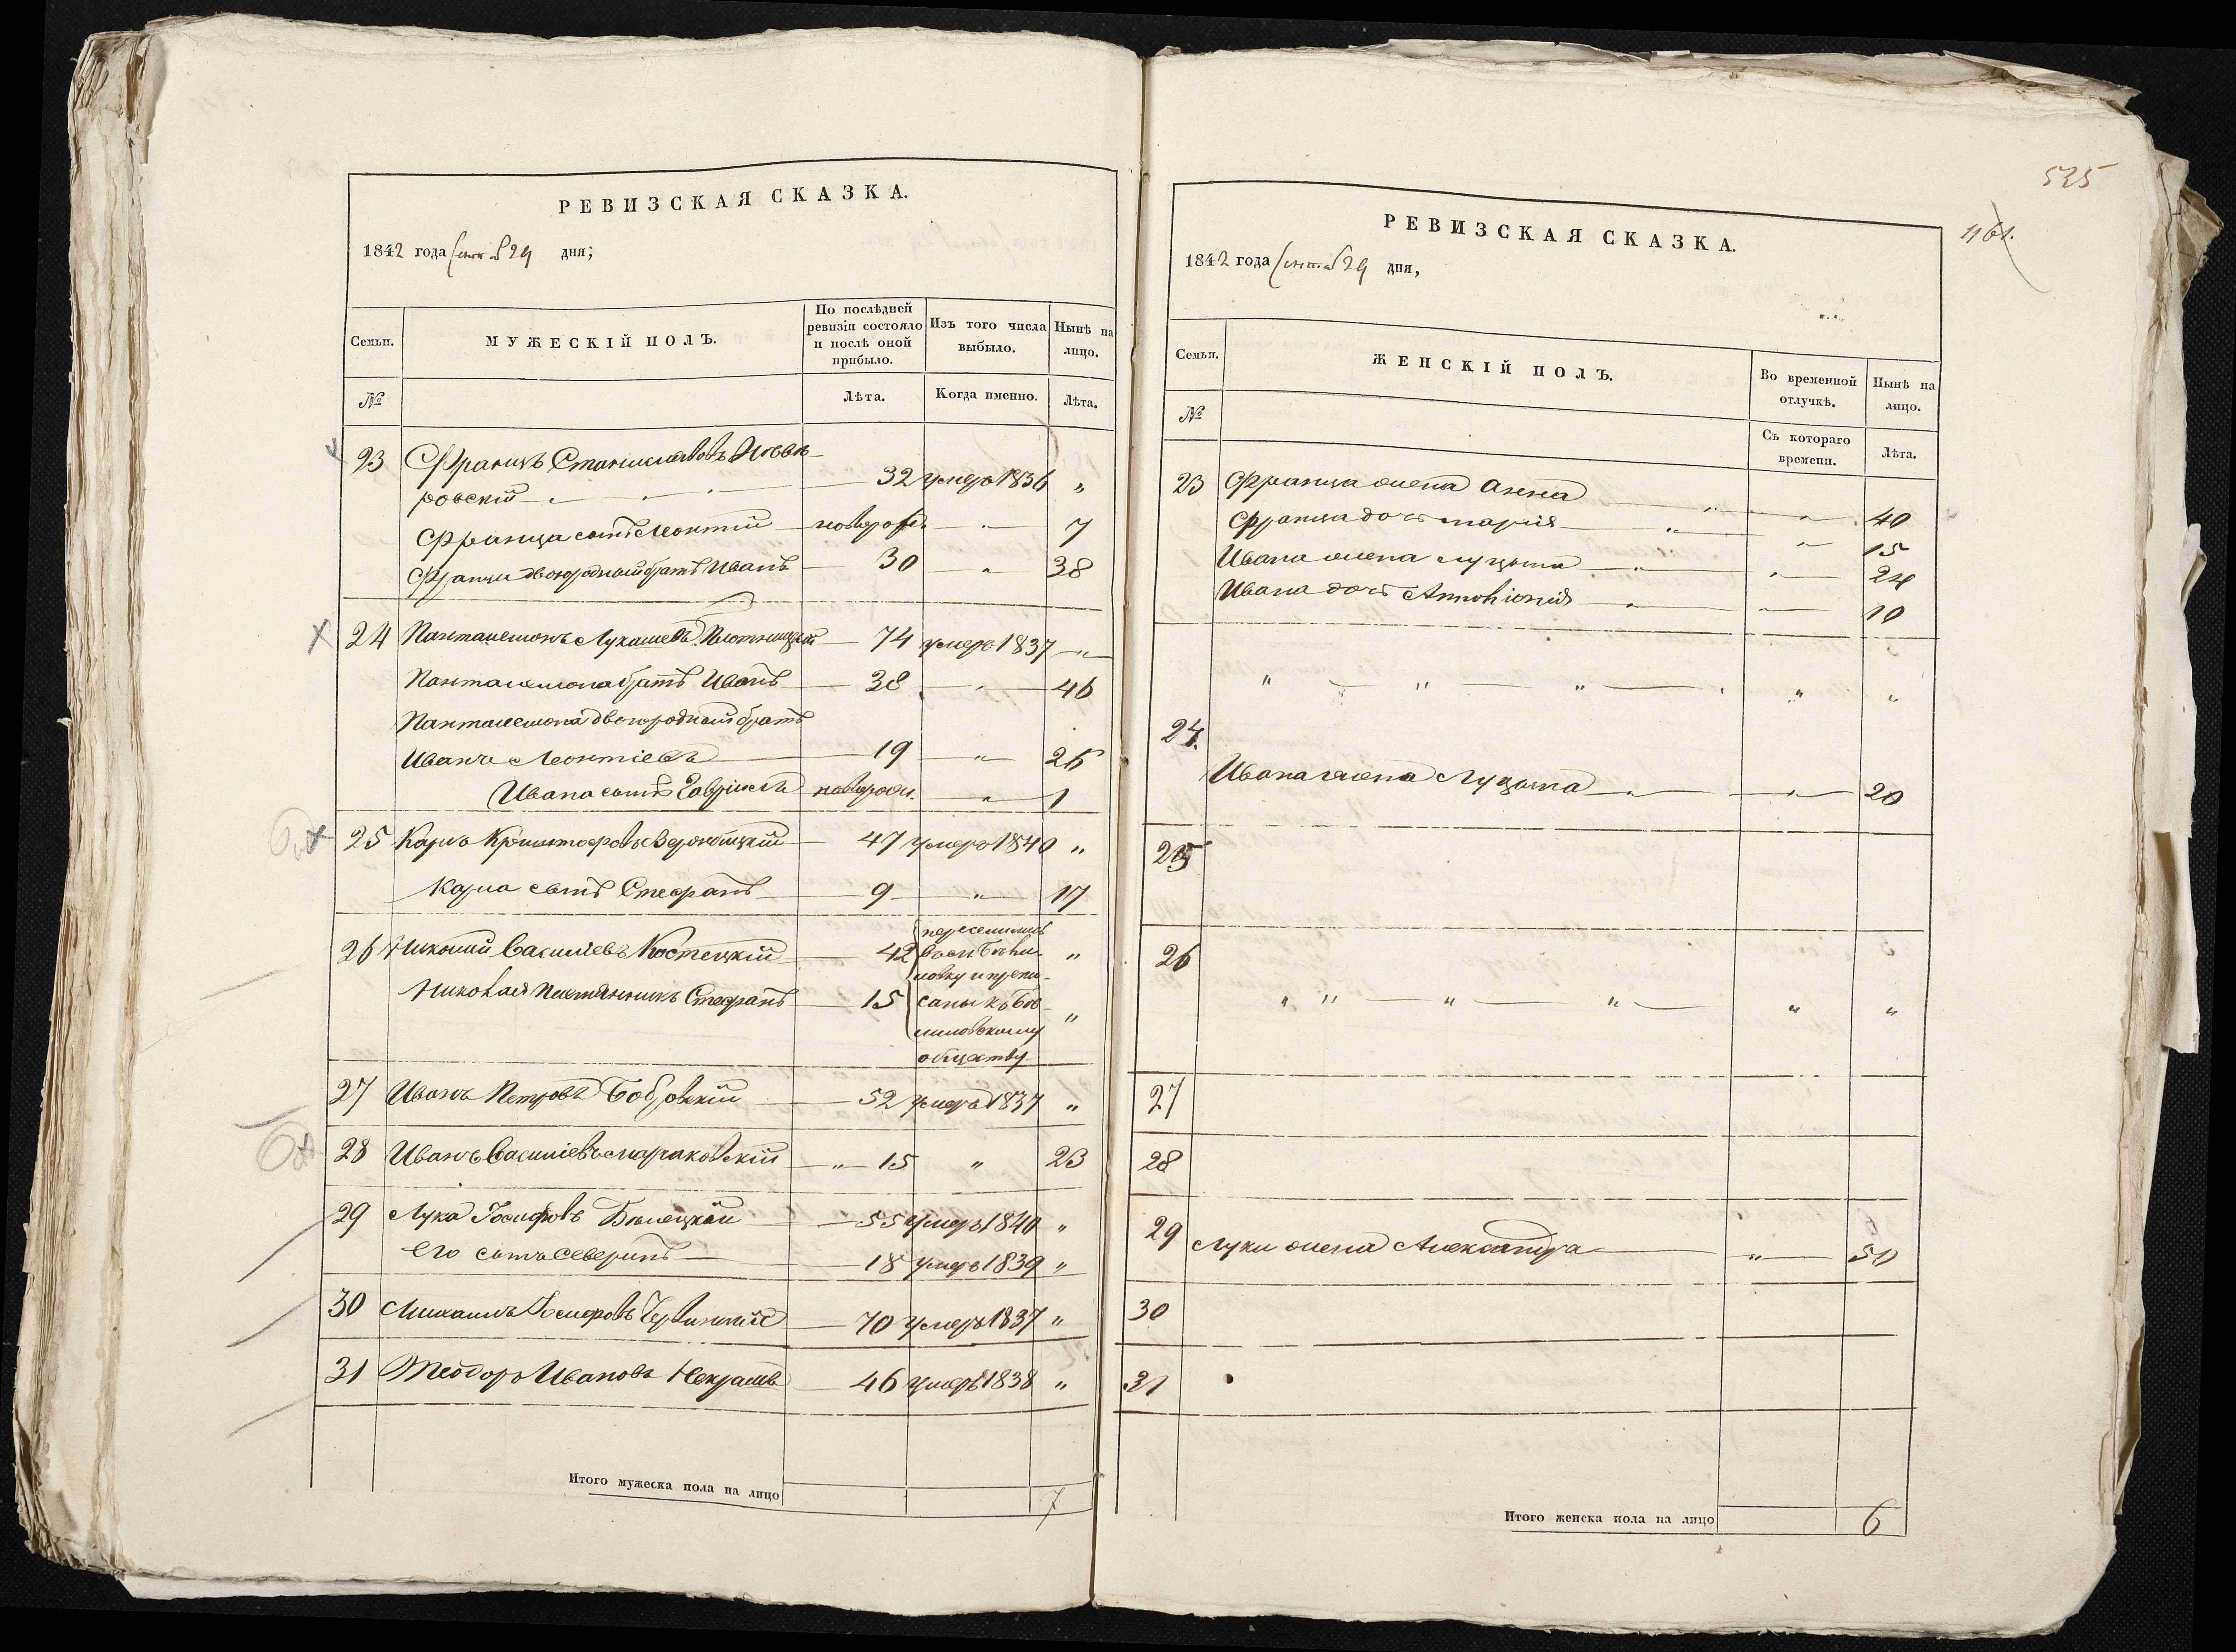 РЕВИЗСКАЯ СКАЗКА.
1842 года Сентяб 29 дня;
Семьи.
МУЖЕСКІЙ ПОЛЪ.
По послѣдней ревизіи состояло и послѣ оной прибыло.
Изъ того числа выбыло.
Нынѣ на лицо.
№
Лѣта.
Когда именно.
Лѣта.
23 Францъ Станиславовъ
ровскій 32 умеръ 1836 "
Франца сынъ Леонтій новорож. " 7
Франца двоюродный братъ Иванъ 30 " 38
24 Панталемонъ Лукашевъ Плотницкій 74 умеръ 1837 "
Панталемона братъ Иванъ 38 " 46
Панталемона двоюродный братъ
Иванъ Леонтіевъ 19 " 26
Ивана сынъ Гавріилъ новорож. " 1
25 Карлъ 47 умеръ 1840 "
Карла сынъ Стефанъ 9 " 17
26 Николай Василіевъ Костецкій 42 "
Николая племянникъ Стефанъ 15 "
переселились
въ сел.
ловку и припи-
саны къ
миловскому
обществу
27 Иванъ Петровъ Бобровскій 52 умеръ 1837 "
28 Иванъ Василіевъ Мараковскій " 15 " 23
29 Лука Іосифовъ Билецкій 55 умеръ 1840 "
Его сынъ Северинъ 18 умеръ 1839 "
30 Михаилъ Іосифовъ Червинскій 70 умеръ 1837 "
31 Теодоръ Ивановъ Некрашъ 46 умеръ 1838 "
Итого мужеска пола на лицо 7
535
461.
РЕВИЗСКАЯ СКАЗКА.
1842 года Сентяб 29 дня,
Семьи.
ЖЕНСКІЙ ПОЛЪ.
Во временной отлучкѣ.
Нынѣ на лицо.
№
Съ котораго времени.
Лѣта.
23 Франца жена Анна " " 40
Франца дочь Марія " " 15
Ивана жена Луцыя " " 24
Ивана дочь Антонія " " 10
" " " " "
24.
Ивана жена Луцыя " " 20
25
26
" " " " " "
27
28
29 Луки жена Александра " 50
30
31
Итого женска пола на лицо 6